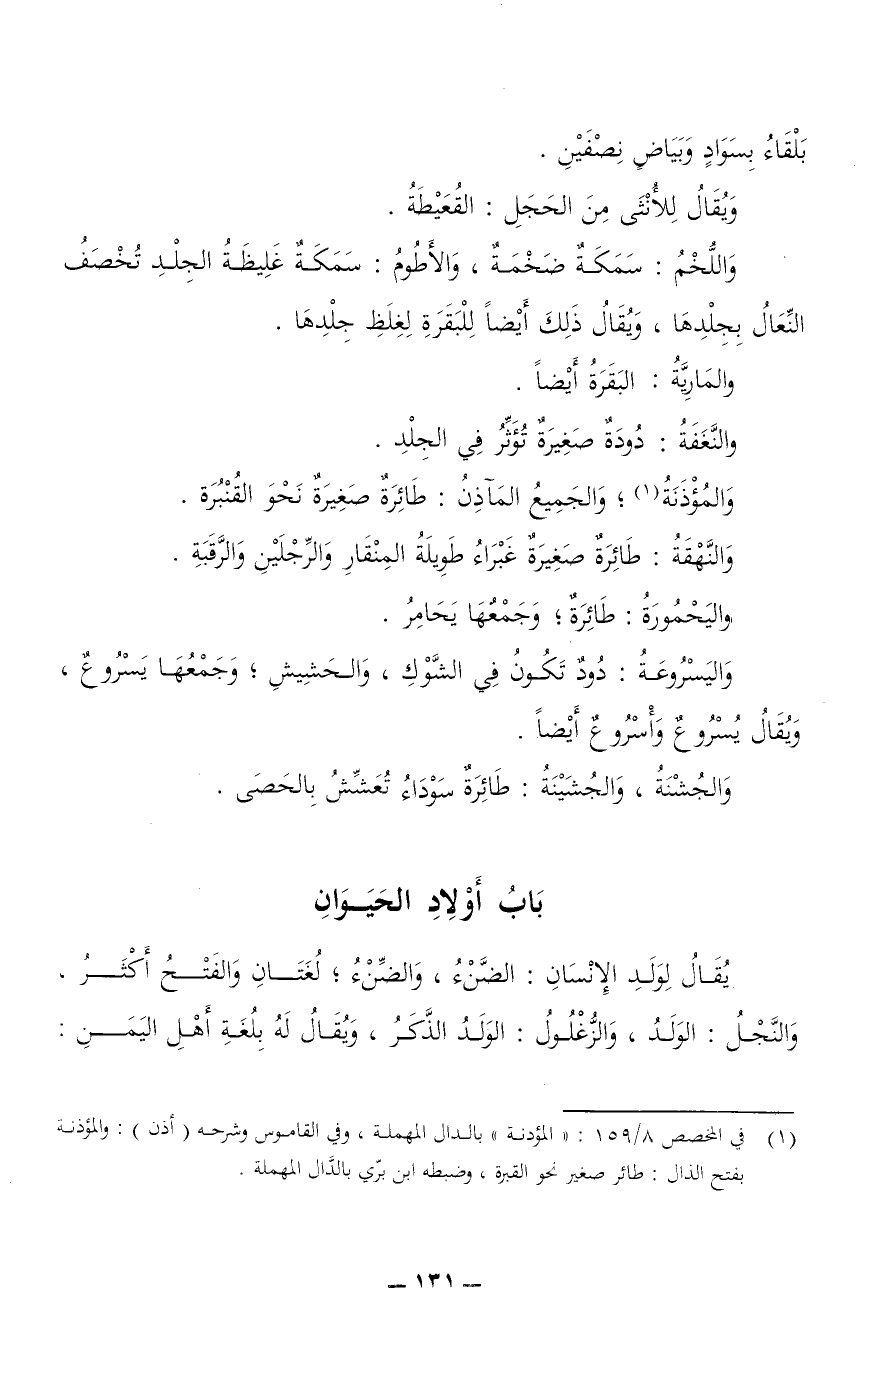 بَلْقَاءُ بِسَوَادٍ وَبَيَاضٍ نِصْفَيْنِ .
وَيُقَالُ لِلأُنْثَى مِنَ الحَجَلِ : القُعَيْطَةُ .
وَاللُّخْمُ : سَمَكَةٌ ضَخْمَةٌ ، وَالأَطُومُ : سَمَكَةٌ غَلِيظَةُ الجِلْدِ تُخْصَفُ
النِّعَالُ بِجِلْدِهَا ، وَيُقَالُ ذَلِكَ أَيْضاً لِلْبَقَرَةِ لِغِلَظِ جِلْدِهَا .
والمَارِيَّةُ : البَقَرَةُ أَيْضاً .
والنَّغَفَةُ : دُودَةٌ صَغِيرَةٌ تُؤَثِّرُ فِي الجِلْدِ .
وَالمُؤْذَنَةُ(١) ؛ وَالجَمِيعُ المَآذِنُ : طَائِرَةٌ صَغِيرَةٌ نَحْوَ القُنْبُرَة .
وَالنَّهْقَةُ : طَائِرَةٌ صَغِيرَةٌ غَبْرَاءُ طَوِيلَةُ المِنْقَارِ وَالرِّجْلَيْنِ وَالرَّقَبَةِ .
واليَحْمُورَةُ : طَائِرَةٌ ؛ وَجَمْعُهَا يَحَامِرُ .
وَاليَسْرُوعَةُ : دُودٌ تَكُونُ فِي الشَّوْكِ ، وَالحَشِيشِ ؛ وَجَمْعُهَا يَسْرُوعٌ ،
وَيُقَالُ يُسْرُوعٌ وَأُسْرُوعٌ أَيْضاً .
وَالجُشْنَةُ ، وَالجُشَيْنَةُ : طَائِرَةٌ سَوْدَاءُ تُعَشِّشُ بِالحَصَى .
بَابُ أَوْلادِ الحَيَوَانِ
يُقَالُ لِوَلَدِ الإِنْسَانِ : الضَّنْءُ ، وَالضِّنْءُ ؛ لُغَتَانِ وَالفَتْحُ أَكْثَرُ .
وَالنَّجْلُ : الوَلَدُ ، وَالزُّغْلُولُ : الوَلَدُ الذَّكَرُ ، وَيُقَالُ لَهُ بِلُغَةِ أَهْلِ اليَمَنِ :
(١) في المخصص ١٥٩/٨ : « المؤدنة » بالدال المهملة ، وفي القاموس وشرحه ( أذن ) : والمؤذنة
بفتح الذال : طائر صغير نحو القبرة ، وضبطه ابن برّي بالدَّال المهملة .
— ١٣١ —